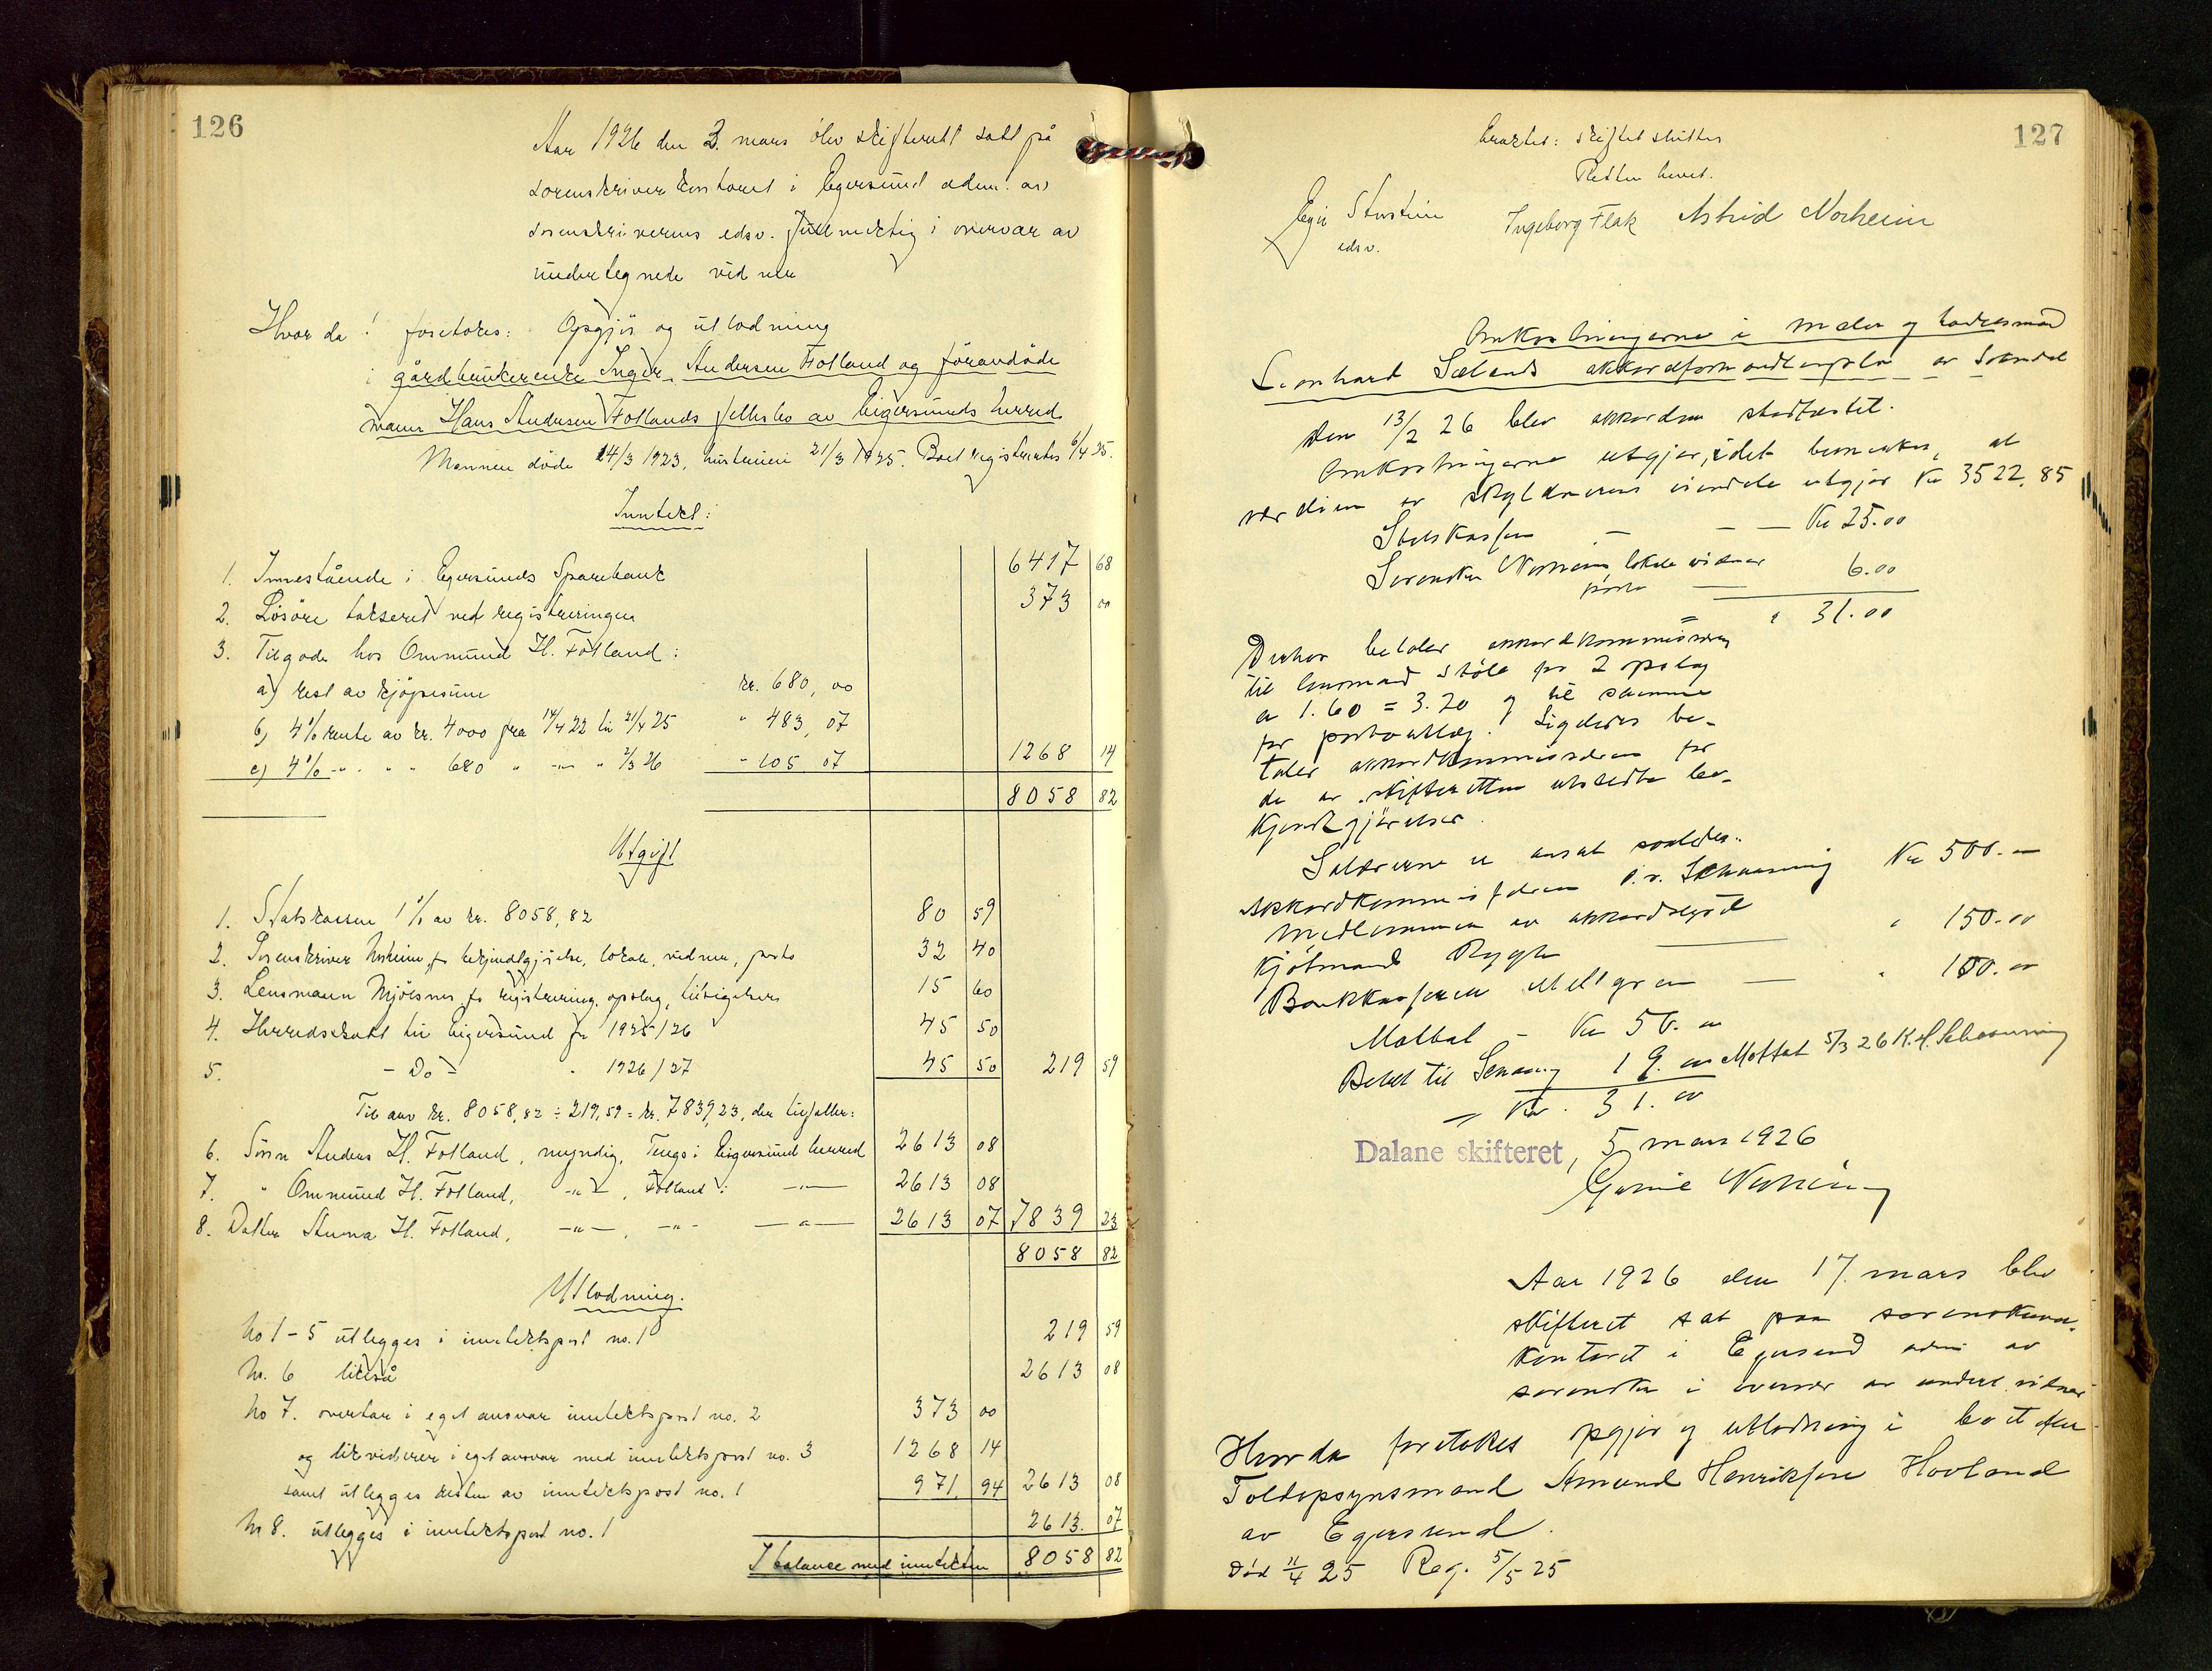 126
Aar 1926 den 2. mars blev skifterett satt på
sorenskriverkontoret i Egersund adm. av
sorenskriverens edsv. fullmektig i overvær av
undertegnede vidner
Hvorda foretokes: Opgjör og utlodning
i gårdbrukerenke Inger Andersen Fotland og föravdöde
mann Hans Andersen Fotlands fellesbo av Eigersunds herred
Mannen döde 14/3 1923, hustruen 21/3 1925. Boet registrertes 6/4 25.
Inntekt:
1. Innestående i Egersunds Sparebank 6417 68
2. Lösöre taksert ved registreringen 373 00
3. Tilgode hos Ommund H. Fotland:
a) rest av kjöpesum kr. 680,00
b) 4% rente av kr. 4000 fra 14/4 22 til 21/4 25 " 483,07
c) 4% -"- " " 680 " -"- " 2/3 26 " 105 07 1268 14
8058 82
Utgift
1. Statskassen 1% av kr. 8058,82 80 59
2. Sorenskriver Norheim for bekjendtgjörelse, lokale, vidner, porto 32 40
3. Lensmann Mjölsnes for registrering, opslag, tilsigelser 15 60
4. Herredsskatt til Eigersund for 1925/26 45 50
5. - Do - 1926/27 45 50 219 59
Til arv kr. 8058,82 ÷ 219,59 = kr. 7839,23, der tilfaller:
6. Sönn Anders H. Fotland, myndig, Tengs i Eigersund herred 2613 08
7. " Ommund H. Fotland, -"-, Fotland i -"- 2613 08
8. Datter Anna H. Fotland, -"-, -"- -"- 2613 07 7839 23
8058 82
Utlodning.
No 1-5 utlegges i inntektspost no. 1 219 59
No. 6 likeså 2613 08
No 7. overtar i eget ansvar inntektspost no. 2 373 00
og likviderer i eget ansvar med inntektspost no. 3 1268 14
samt utlegges resten av inntektspost no. 1 971 94 2613 08
No 8. utlegges i inntektspost no. 1 2613. 07
I balance med inntekten 8058 82
127
skiftet sluttes
Retten hevet.
edsv.
Ingeborg Flak Astrid Norheim
Omkostningerne i maler og handelsmand
Leonhard Sælands akkordforhandling
Den 13/2 26 blev akkorden stadfæstet.
Omkostningerne utgjør, idet bemerkes, at
værdien av skyldnerens eiendele utgjør Kr 3522,85
Statskassen - - - Kr 25.00
Sorenskr Norheim lokale vidner
porto 6.00
= " 31.00
Derhos betaler akkordkommissæren
til lensmand Støle for 2 opslag
a 1.60 = 3.20 og til samme
for portoutlæg. Ligeledes be-
taler akkordkommissæren for
de av skifteretten utstedte be-
kjendtgjørelser.
Salærerne er ansat saaledes:
Akkordkommissæren o.r. Schaanning Kr 500.-
Medlemmer av akkordstyret
Kjøbmand Rygh " 150.00
Bankkasserer Mellgren " 100.00
Motbat - Kr 50.00
Betalt til Schaanning 19.00 Mottat 5/3 26 K.H. Schaanning
= Kr. 31.00
Dalane skifteret, 5 mars 1926
Aar 1926 den 17. mars blev
skifteret sat paa sorenskriver-
kontoret i Egersund adm av
sorenskr i overvær av undert. vidner
Hvorda foretokes opgjør og utlodning i boet efter
Toldopsynsmand Amund Henriksen Hovland
av Egersund.
Død 11/4 25 Reg. 5/5 25